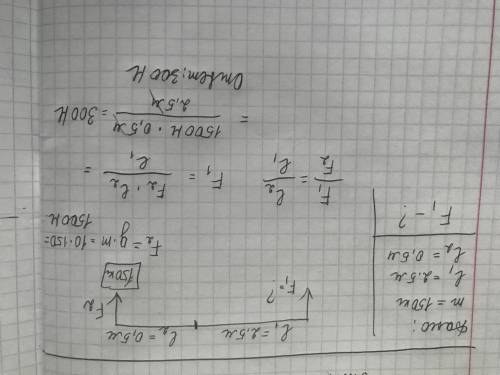 Дано:
m = 150 кг
l₁ = 2,5 м
l₂ = 0,5 м
F₁ - ?
l₁ = 2,5 м
l₂ = 0,5 м
F₁ = ?
F₂
150 кг
F₂ = g · m = 10 · 150 =
1500 Н
F₁/F₂ = l₂/l₁
F₁ = F₂ · l₂ / l₁ =
= 1500 Н · 0,5 м / 2,5 м = 300 Н
Ответ: 300 Н